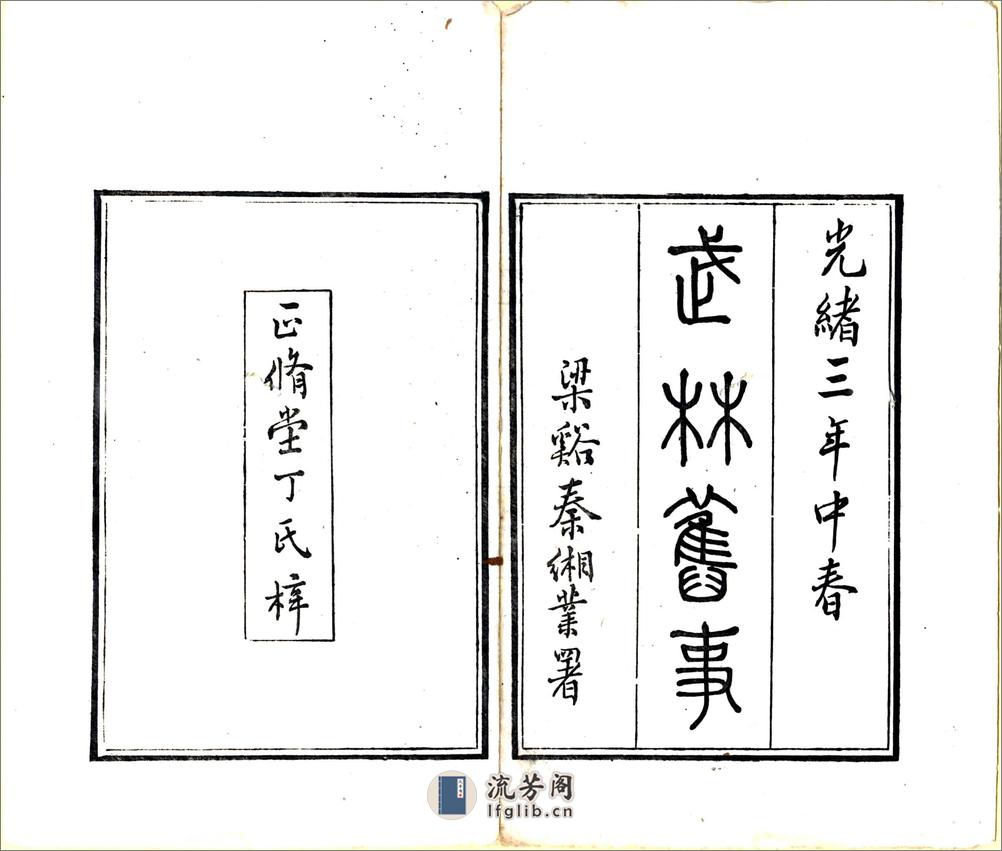 光緒三年中春
武林舊事
梁谿秦緗業署
正脩堂丁氏梓
流芳阁
lfglib.cn